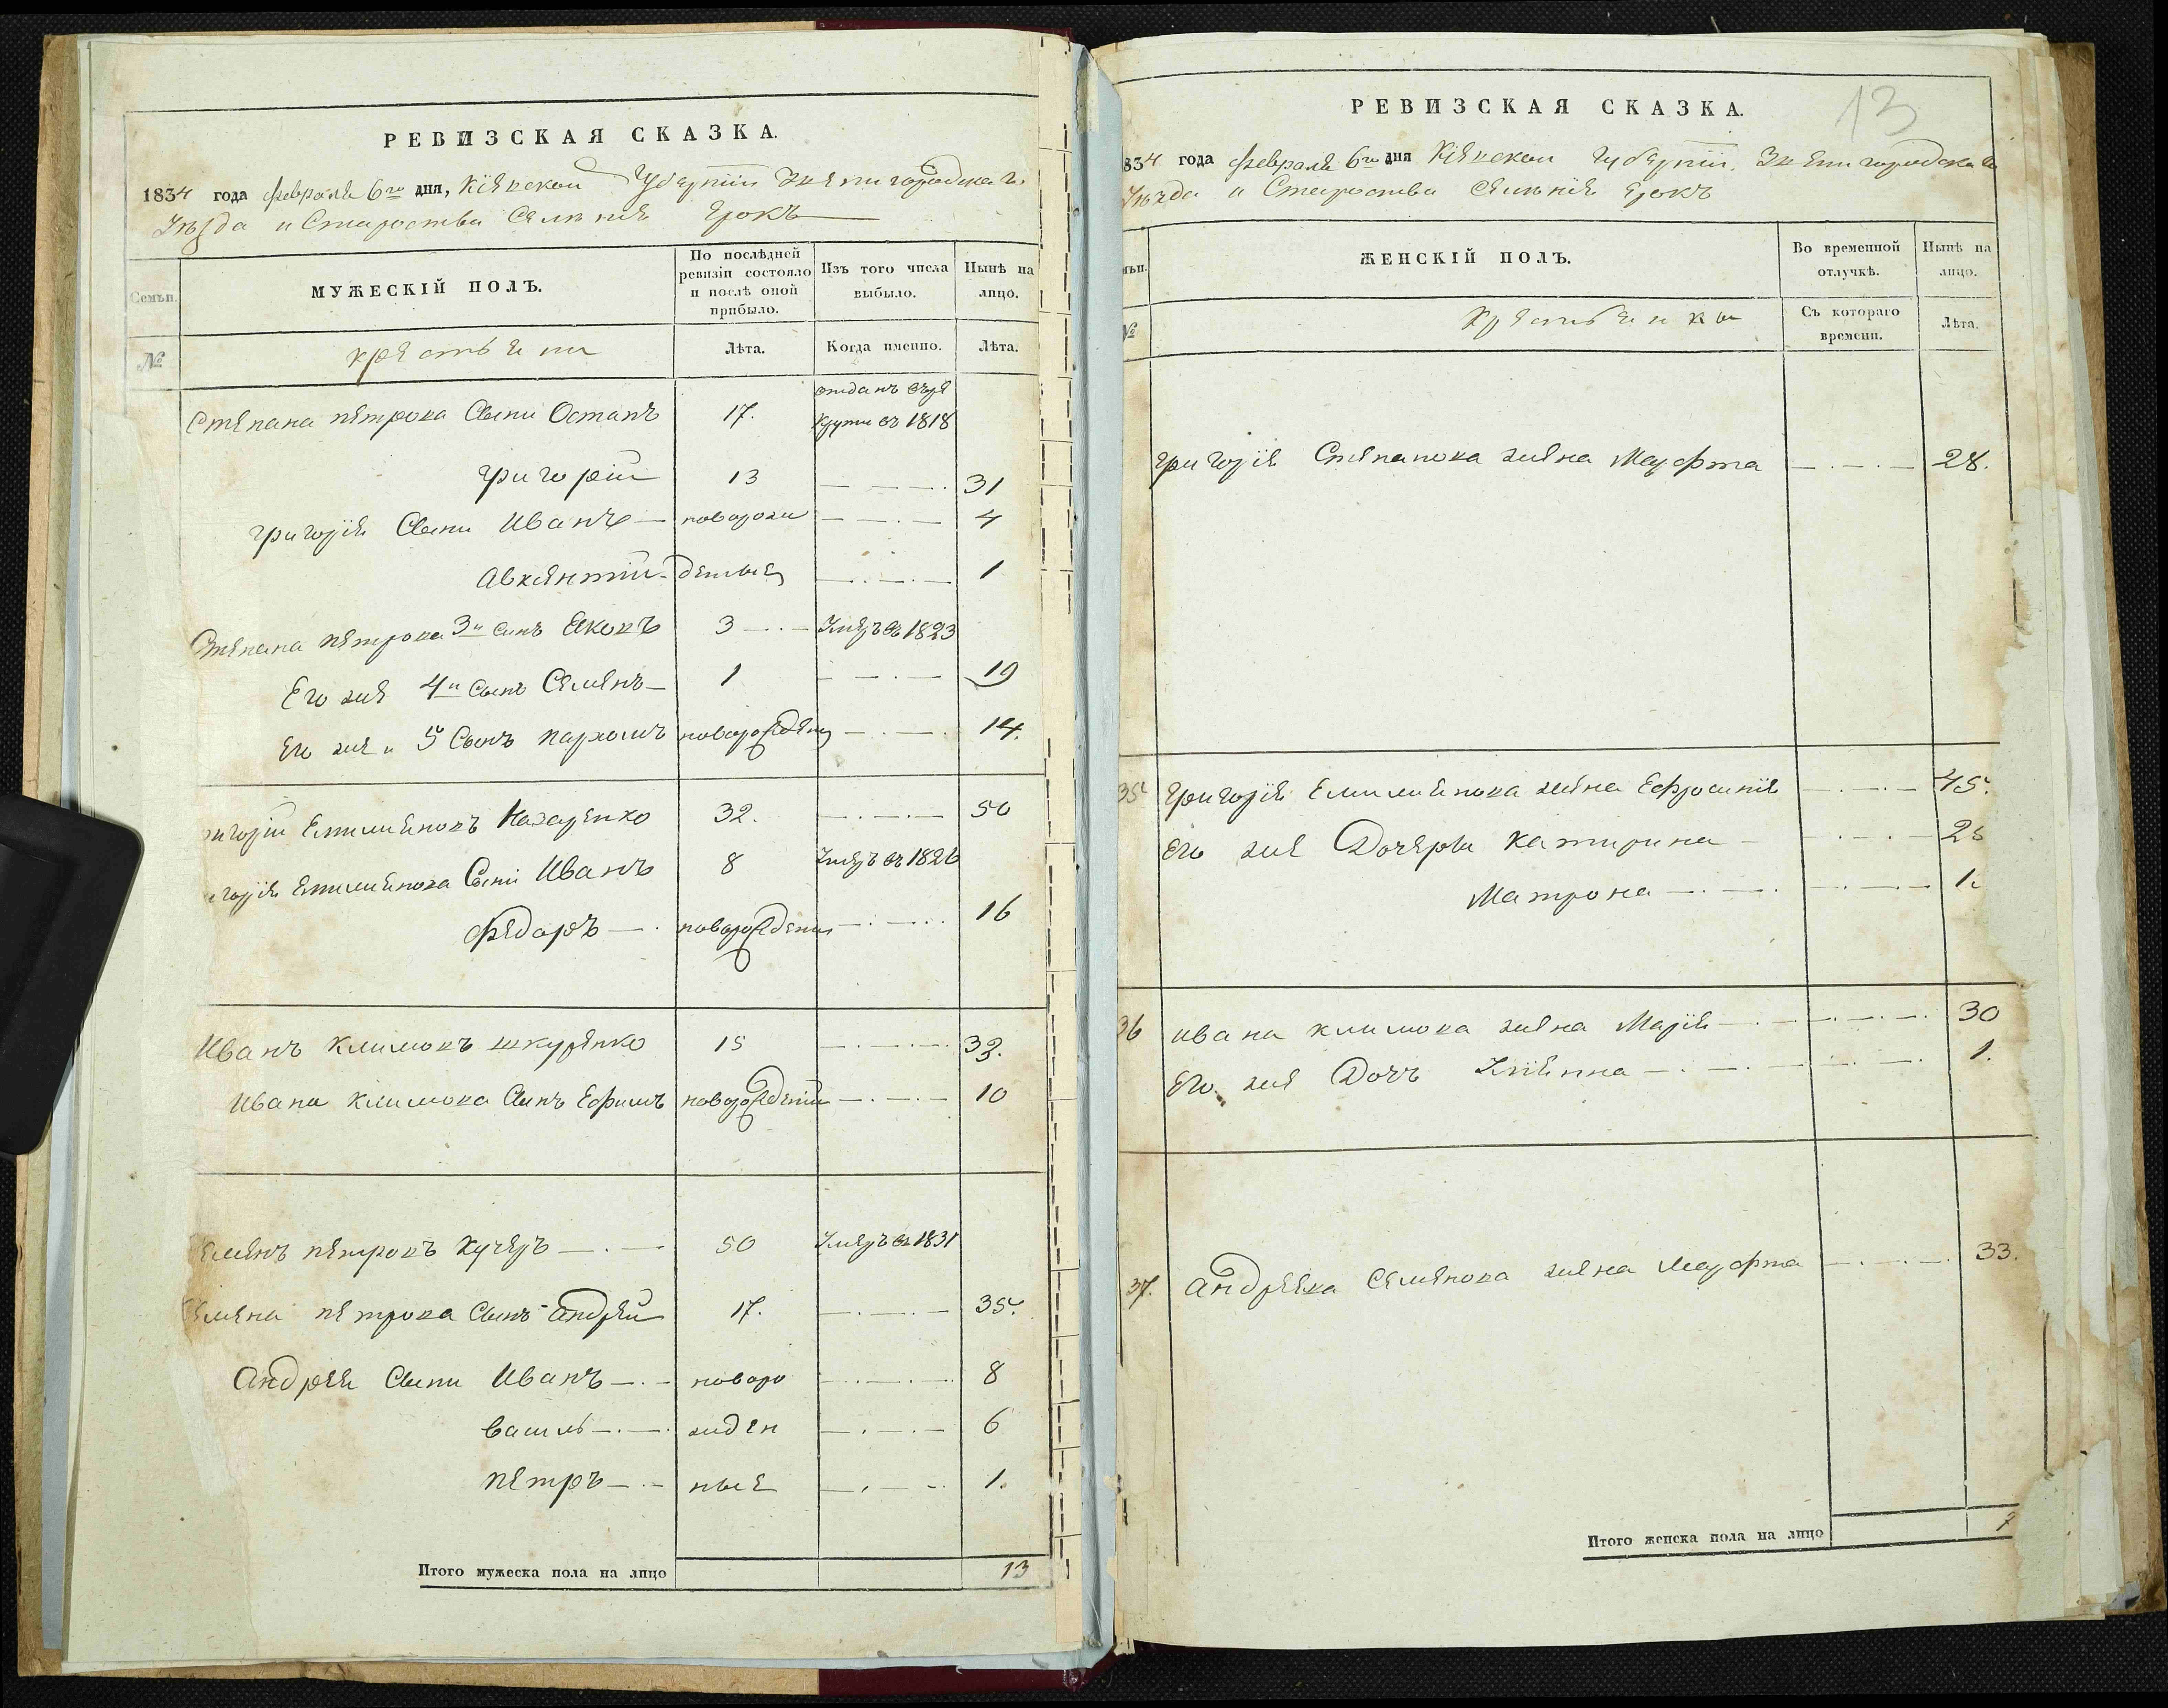 РЕВИЗСКАЯ СКАЗКА.
1834 года февраля 6го дня, Кіевской Губерніи Звенигородскаго
Уѣзда и Староства Селенія
МУЖЕСКІЙ ПОЛЪ.
По послѣдней ревизіи состояло и послѣ оной прибыло.
Изъ того числа выбыло.
Нынѣ на лицо.
Семьи.
№
крестьяни
Лѣта.
Когда именно.
Лѣта.
отданъ въ ре
Степана петрова Сыни Остапъ 17. круты въ 1818
григорій 13 31
григорія Сыни Иванъ новорож 4
Авксентій денные 1
Степана петрова 3й сынъ Яковъ 3 Умеръ въ 1823
Его же 4й Сынъ Семенъ 1 19
Его же и 5 Сынъ пархомъ новорожденъ 14.
ригорій Емилияновъ Назаренко 32. 50
горія Емилиянова Сыни Иванъ 8 Умеръ въ 1826
федоръ новорожденъ 16
Иванъ климовъ шкуренко 15 32.
Ивана климова Сынъ Ефимъ новорожденій 10
Семенъ петровъ кучеръ 50 Умеръ въ 1831
Семена петрова Сынъ андрей 17. 35.
Андрея Сыни Иванъ новоро 8
василь жден 6
петръ ные 1.
Итого мужеска пола на лицо 13
13
РЕВИЗСКАЯ СКАЗКА.
834 года февраля 6го дня Кіевской губерніи. Звенигородскаго
Уѣзда и Староства селенія
мьи.
ЖЕНСКІЙ ПОЛЪ.
Во временной отлучкѣ.
Нынѣ на лицо.
№
крестьянки
Съ котораго времени.
Лѣта.
григорія Степанова жена Марфта 28.
35 григорія Емилиянова жена Ефросинія 45.
Его же Дочери катирина
Матрона 1.
36 ивана климова жена Марія 30
Его же Дочъ Уліяна 1.
37. андреева Семенова жена Марфта 33.
Итого женска пола на лицо 7